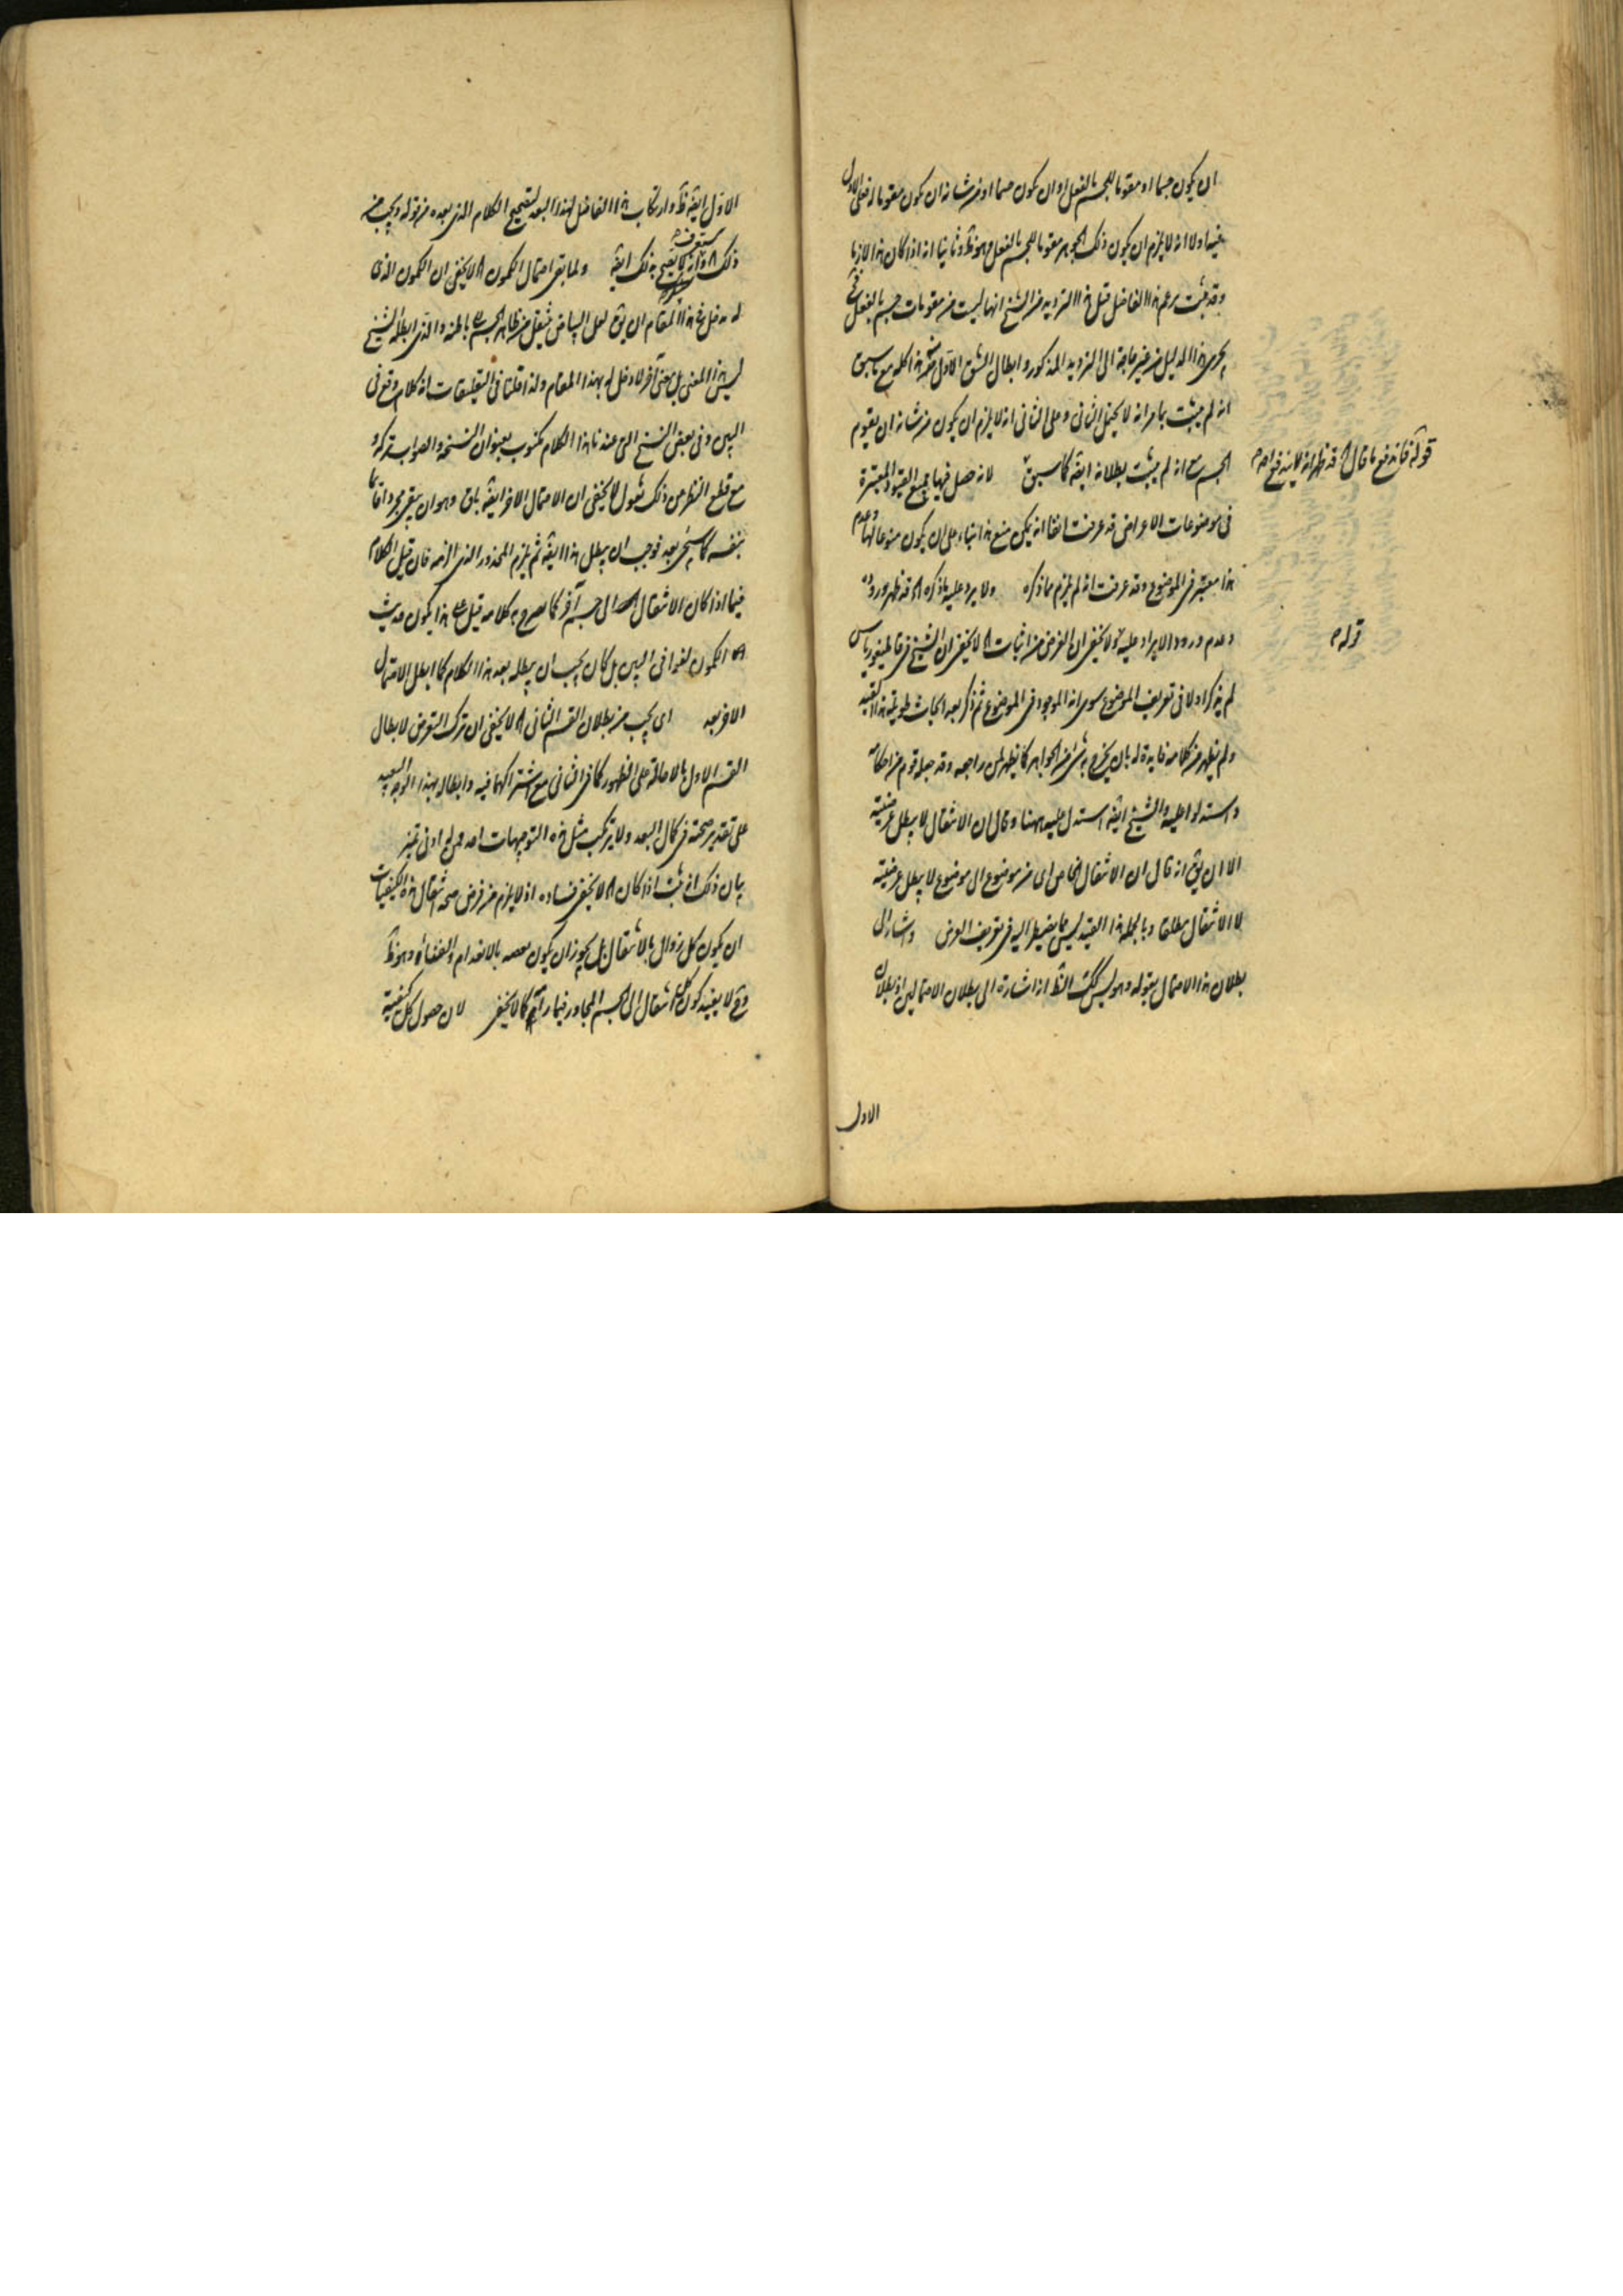 ان يكون جسما او مقوما للجسم بالفعل او ان يكون جسما او من شانه ان يكون مقوما له فعلى الاول
فيه اولا انه لا يلزم ان يكون ذلك الجوهر مقوما للجسم بالفعل وهو ظ وثانيا انه اذا كان هذا لازما
وقد ثبت بزعم هذا الفاضل قبل هذا الترديد من الشيخ انها ليست من مقومات جسم بالفعل
يجرى هذا الدليل من غير حاجة الى الترديد المذكور وابطال الشق الاول هذا كله مع ما سبق
انه لم يثبت بما مر انه لا يحتمل الثانى وعلى الثانى انه لا يلزم ان يكون من شانه ان يقوم
الجسم مع انه لم يثبت بطلانه ايضه كما سبق لانه حصل فيها جميع القيود المعتبرة
قوله فاندفع ما قال قد ظهر انه لا يندفع
فى موضوعات الاعراض قد عرفت انفا انه يمكن منع هذا بناء على ان يكون منوعا لها وعدم
هذا معتبر فى الموضوع وقد عرفت انه لم يلزم مما ذكره ولا يرد عليه ما ذكره قد ظهر وروده
قوله
وعدم ورود الايراد عليه ولا يخفى ان الغرض من اثبات لا يخفى ان الشيخ فى قاطيغورياس
لم يذكر اولا فى تعريف الموضوع سوى انه الموجود فى الموضوع ثم ذكر بعد ابحاث طويلة هذا القيد
ولم يظهر من كلامه فايدة له بان يخرج به شىء من الجواهر كما يظهر لمن راجعه وقد جعله قوم من احكامه
واستدلوا عليه والشيخ ايضه استدل عليه ههنا وقال ان الانتقال لا يبطل عرضيته
الا ان يق انه قال ان الانتقال الخاص اى من موضوع الى موضوع لا يبطل عرضيته
لا الانتقال مطلقا وبالجملة هذا القيد ليس مما يضطر اليه فى تعريف العرض واشار الى
بطلان هذا الاحتمال بقوله وهو ليس كك الظ انه اشارة الى بطلان الاحتمالين اذ بطلان
الاول
الاول ايضه ظ وارتكاب هذا الفاضل لهذا البعد لتصحيح الكلام الذى بعده من قوله ويجب من
ذلك وانه لا يصح بذلك ايضه ولما بقى احتمال الكمون لا يخفى ان الكمون الذى
له دخل فى هذا المقام ان يق لعل البياض ينتقل من ظاهر الجسم الى باطنه والذى ابطله الشيخ
ليس هذا المعنى بل معنى آخر لا دخل له بهذا المقام ولذا قلنا فى التعليقات انه كلام وقع فى
البين وفى بعض النسخ التى عندنا هذا الكلام مكتوب بعنوان النسخة والصواب تركه
مع قطع النظر عن ذلك نقول لا يخفى ان الاحتمال الاخر ايضه باق وهو ان يبقى مجردا قائما
بنفسه كما سيجىء بعد فوجب ان يبطل هذا ايضه ثم يلزم المحذور الذى الزمه فان قيل الكلام
فيما اذا كان الانتقال الى جسم آخر كما صرح به كلامه قيل فع هذا يكون حديث
الكمون لغوا فى البين بل كان يجب ان يبطله بعد هذا الكلام كما ابطل الاحتمال
الاخر بعد اى يجب من بطلان القسم الثانى لا يخفى ان ترك التعرض لابطال
القسم الاول بالاحالة على الظهور كما فى الثانى مع اشتراكهما فيه وابطاله بهذا الوجه البعيد
على تقدير صحته فى كمال البعد ولا يرتكب مثل هذه التوجيهات احد ولى ادنى تميز
بيان ذلك اذ ثبت اذا كان لا يخفى فساده اذ لا يلزم من فرض صحة انتقال هذه الكيفيات
ان يكون كل زوال بالانتقال بل يجوز ان يكون بعضه بالانعدام والفناء وهو ظ
وح لا يفيد كون كل انتقال الى الجسم المجاور فيما رامه كما لا يخفى لان حصول كل كيفية